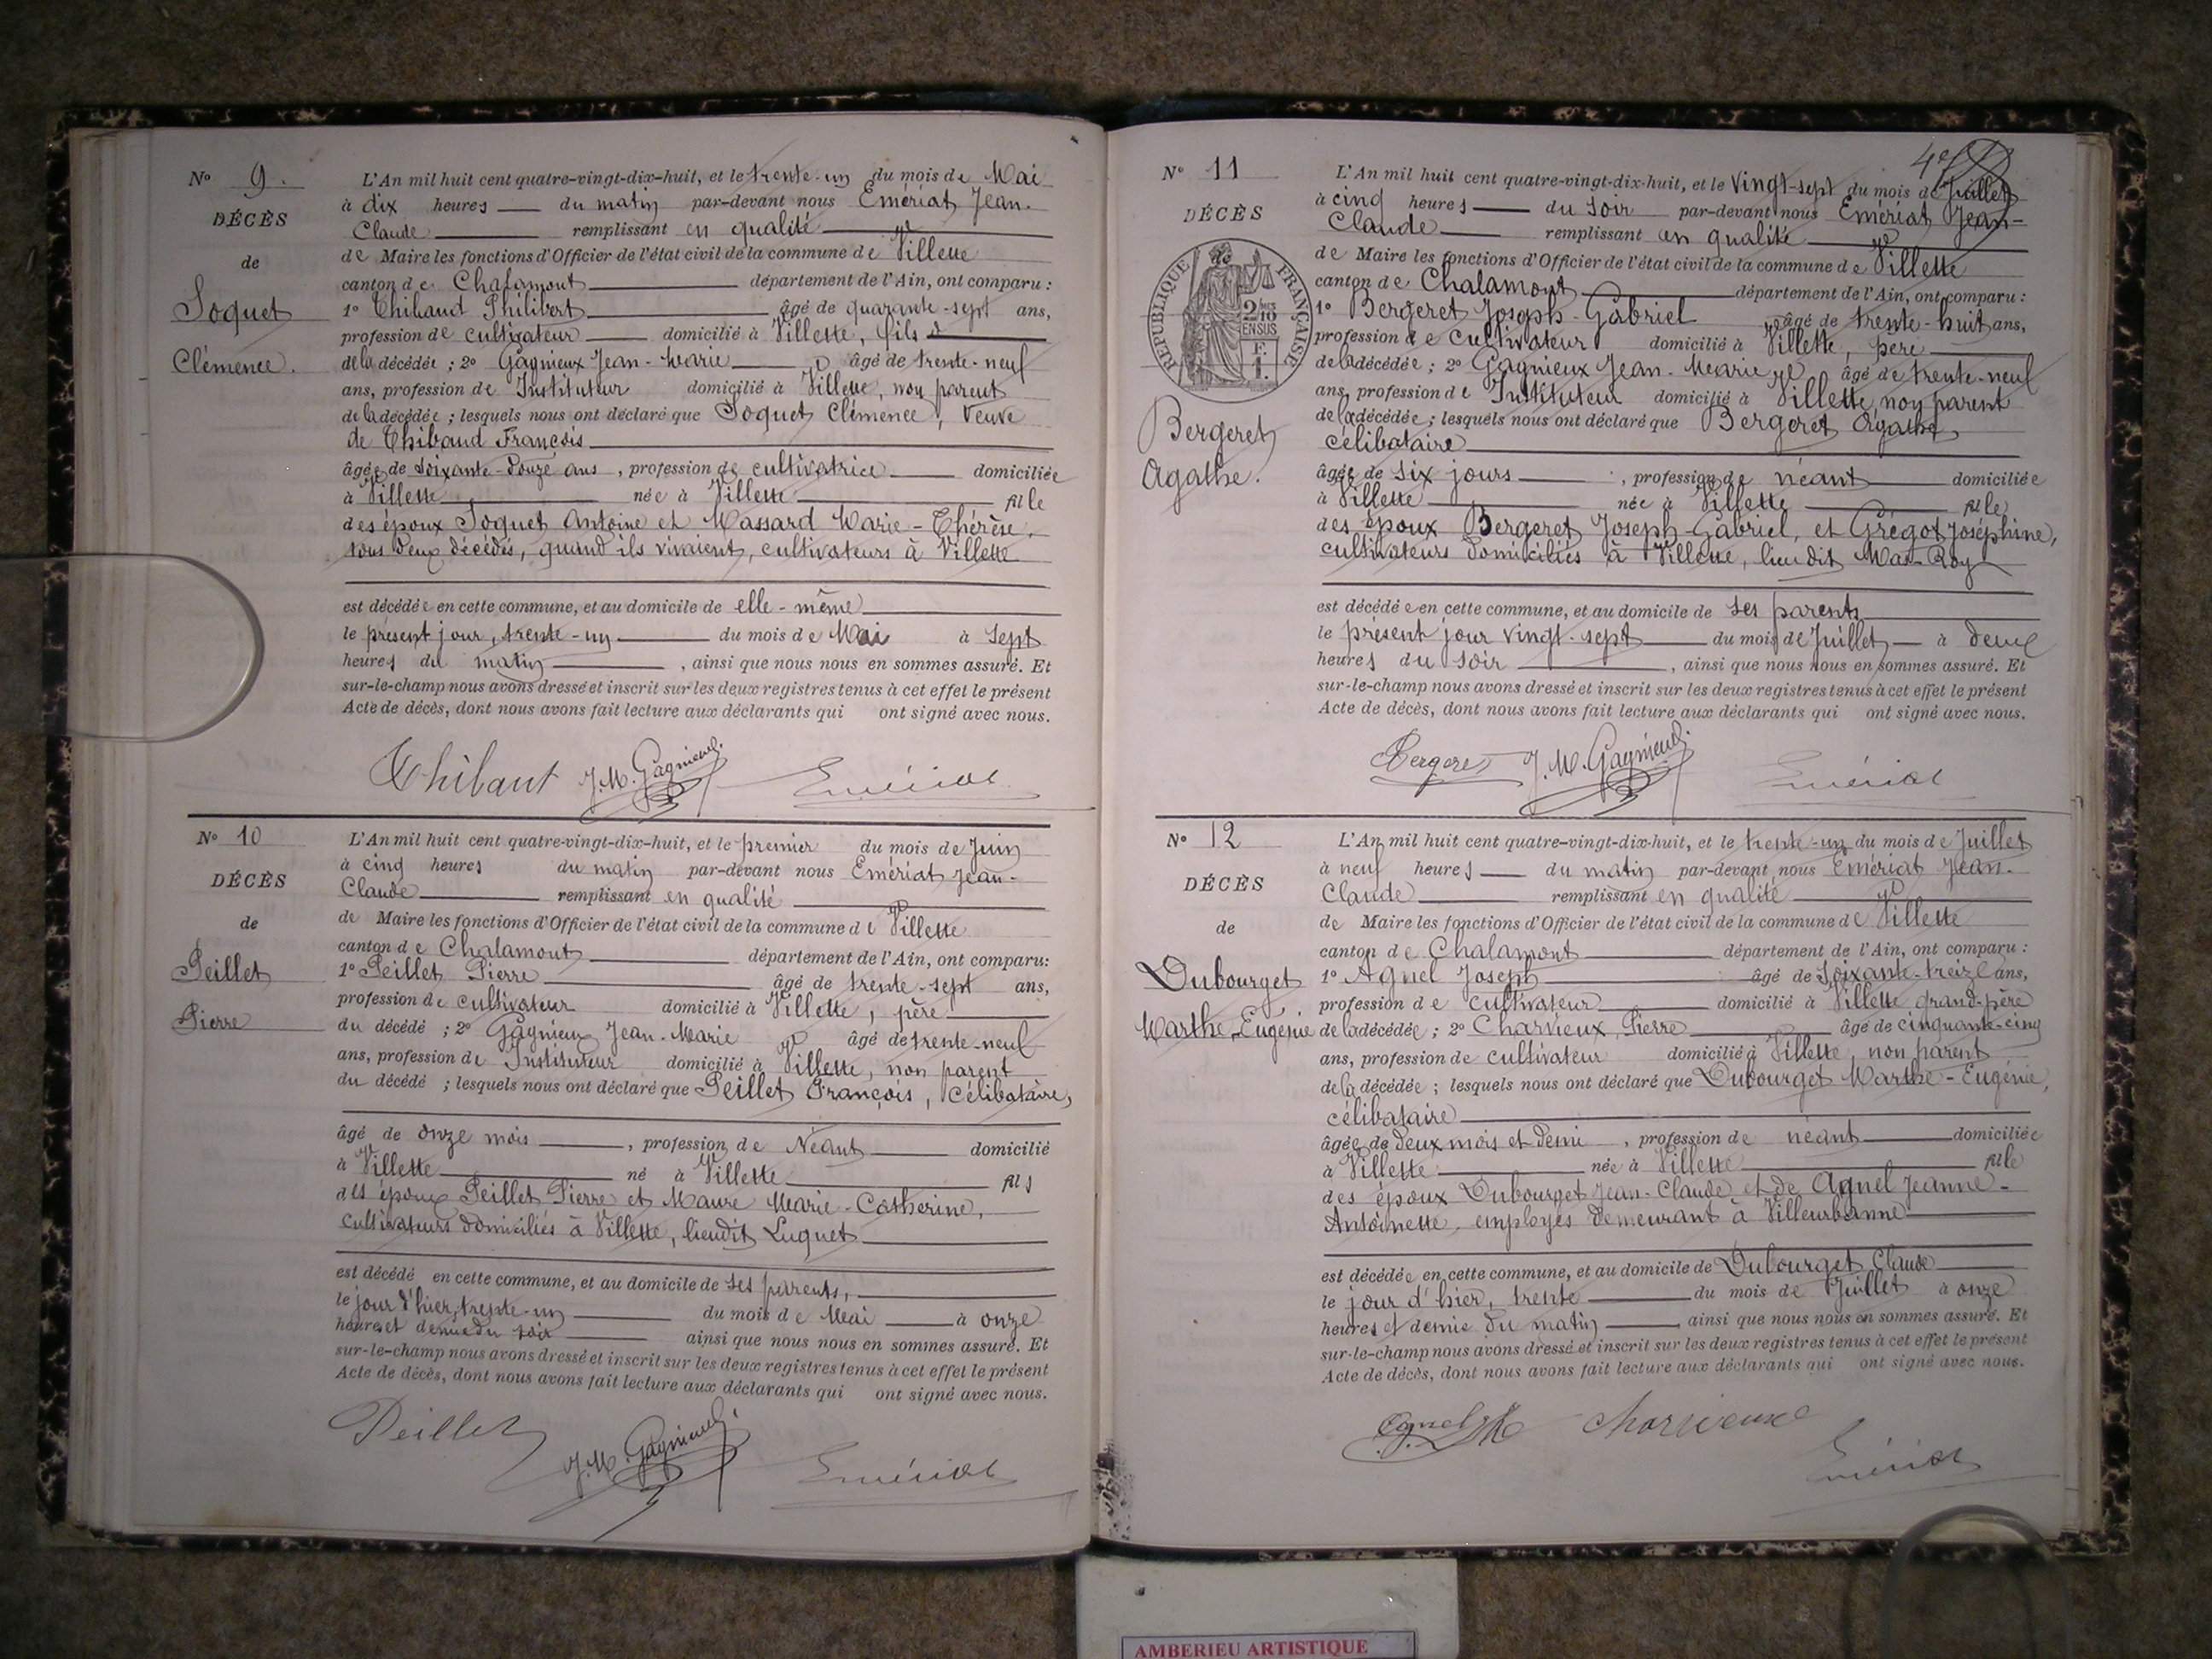 N° 9.
DÉCÈS
de
Soquet
Clémence.
L'An mil huit cent quatre-vingt-dix-huit, et le trente-un du mois de Mai
à dix heures du matin par-devant nous Emériat Jean-
Claude remplissant en qualité
de Maire les fonctions d'Officier de l'état civil de la commune de Villette
canton de Chalamont département de l'Ain, ont comparu :
1° Thibaud Philibert âgé de quarante-sept ans,
profession de cultivateur domicilié à Villette, fils
de la décédée ; 2° Gagnieux Jean-Marie âgé de trente-neuf
ans, profession de Instituteur domicilié à Villette, non parent
de la décédée ; lesquels nous ont déclaré que Soquet Clémence, Veuve
de Thibaud François
âgée de soixante-douze ans, profession de cultivatrice domiciliée
à Villette née à Villette fille
des époux Soquet Antoine et Massard Marie-Thérèse,
tous deux décédés, quand ils vivaient, cultivateurs à Villette
est décédée en cette commune, et au domicile de elle-même
le présent jour, trente-un du mois de Mai à sept
heures du matin, ainsi que nous nous en sommes assuré. Et
sur-le-champ nous avons dressé et inscrit sur les deux registres tenus à cet effet le présent
Acte de décès, dont nous avons fait lecture aux déclarants qui ont signé avec nous.
Thibaut J.M. Gagnieux Emériat
N° 10
DÉCÈS
de
Peillet
Pierre
L'An mil huit cent quatre-vingt-dix-huit, et le premier du mois de Juin
à cinq heures du matin par-devant nous Emériat Jean-
Claude remplissant en qualité
de Maire les fonctions d'Officier de l'état civil de la commune de Villette
canton de Chalamont département de l'Ain, ont comparu:
1° Peillet Pierre âgé de trente-sept ans,
profession de cultivateur domicilié à Villette, père
du décédé ; 2° Gagnieux Jean-Marie âgé de trente-neuf
ans, profession de Instituteur domicilié à Villette, non parent
du décédé ; lesquels nous ont déclaré que Peillet François, célibataire,
âgé de onze mois, profession de Néant domicilié
à Villette né à Villette fils
des époux Peillet Pierre et Maure Marie-Catherine,
cultivateurs domiciliés à Villette, lieudit Luquet
est décédé en cette commune, et au domicile de ses parents,
le jour d'hier, trente-un du mois de Mai à onze
heures et demie du soir ainsi que nous nous en sommes assuré. Et
sur-le-champ nous avons dressé et inscrit sur les deux registres tenus à cet effet le présent
Acte de décès, dont nous avons fait lecture aux déclarants qui ont signé avec nous.
Peillet J.M. Gagnieux Emériat
N° 11
DÉCÈS
RÉPUBLIQUE FRANÇAISE
2/10
EN SUS
Bergeret
Agathe.
L'An mil huit cent quatre-vingt-dix-huit, et le Vingt-sept du mois de Juillet
à cinq heures du soir par-devant nous Emériat Jean-
Claude remplissant en qualité
de Maire les fonctions d'Officier de l'état civil de la commune de Villette
canton de Chalamont département de l'Ain, ont comparu :
1° Bergeret Joseph-Gabriel âgé de trente-huit ans,
profession de cultivateur domicilié à Villette, père
de la décédée ; 2° Gagnieux Jean-Marie âgé de trente-neuf
ans, profession de Instituteur domicilié à Villette, non parent
de la décédée ; lesquels nous ont déclaré que Bergeret Agathe,
célibataire
âgée de six jours, profession de néant domiciliée
à Villette née à Villette fille
des époux Bergeret Joseph-Gabriel, et Grégot Joséphine,
cultivateurs domiciliés à Villette, lieudit Mas-Roy
est décédée en cette commune, et au domicile de ses parents
le présent jour vingt-sept du mois de Juillet à deux
heures du soir, ainsi que nous nous en sommes assuré. Et
sur-le-champ nous avons dressé et inscrit sur les deux registres tenus à cet effet le présent
Acte de décès, dont nous avons fait lecture aux déclarants qui ont signé avec nous.
Bergeret J.M. Gagnieux Emériat
N° 12
DÉCÈS
de
Dubourget
Marthe-Eugénie
L'An mil huit cent quatre-vingt-dix-huit, et le trente-un du mois de Juillet
à neuf heures du matin par-devant nous Emériat Jean-
Claude remplissant en qualité
de Maire les fonctions d'Officier de l'état civil de la commune de Villette
canton de Chalamont département de l'Ain, ont comparu :
1° Agnel Joseph âgé de soixante-treize ans,
profession de cultivateur domicilié à Villette grand-père
de la décédée ; 2° Charvieux Pierre âgé de cinquante-cinq
ans, profession de cultivateur domicilié à Villette, non parent
de la décédée ; lesquels nous ont déclaré que Dubourget Marthe-Eugénie,
célibataire
âgée de deux mois et demi, profession de néant domiciliée
à Villette née à Villette fille
des époux Dubourget Jean-Claude et de Agnel Jeanne-
Antoinette, employés demeurant à Villeurbanne
est décédée en cette commune, et au domicile de Dubourget Claude
le jour d'hier, trente du mois de Juillet à onze
heures et demie du matin ainsi que nous nous en sommes assuré. Et
sur-le-champ nous avons dressé et inscrit sur les deux registres tenus à cet effet le présent
Acte de décès, dont nous avons fait lecture aux déclarants qui ont signé avec nous.
Agnel Charvieux
Emériat
AMBERIEU ARTISTIQUE